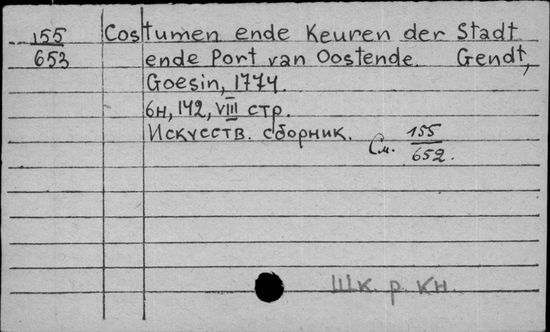 155 Costumen ende Keuren der Stadt
653 ende Port van Oostende. Gendt,
Goesin, 1774.
6н, 142, VIII стр.
Искусств. сборник. См. 155
652.
Шк. р. кн.